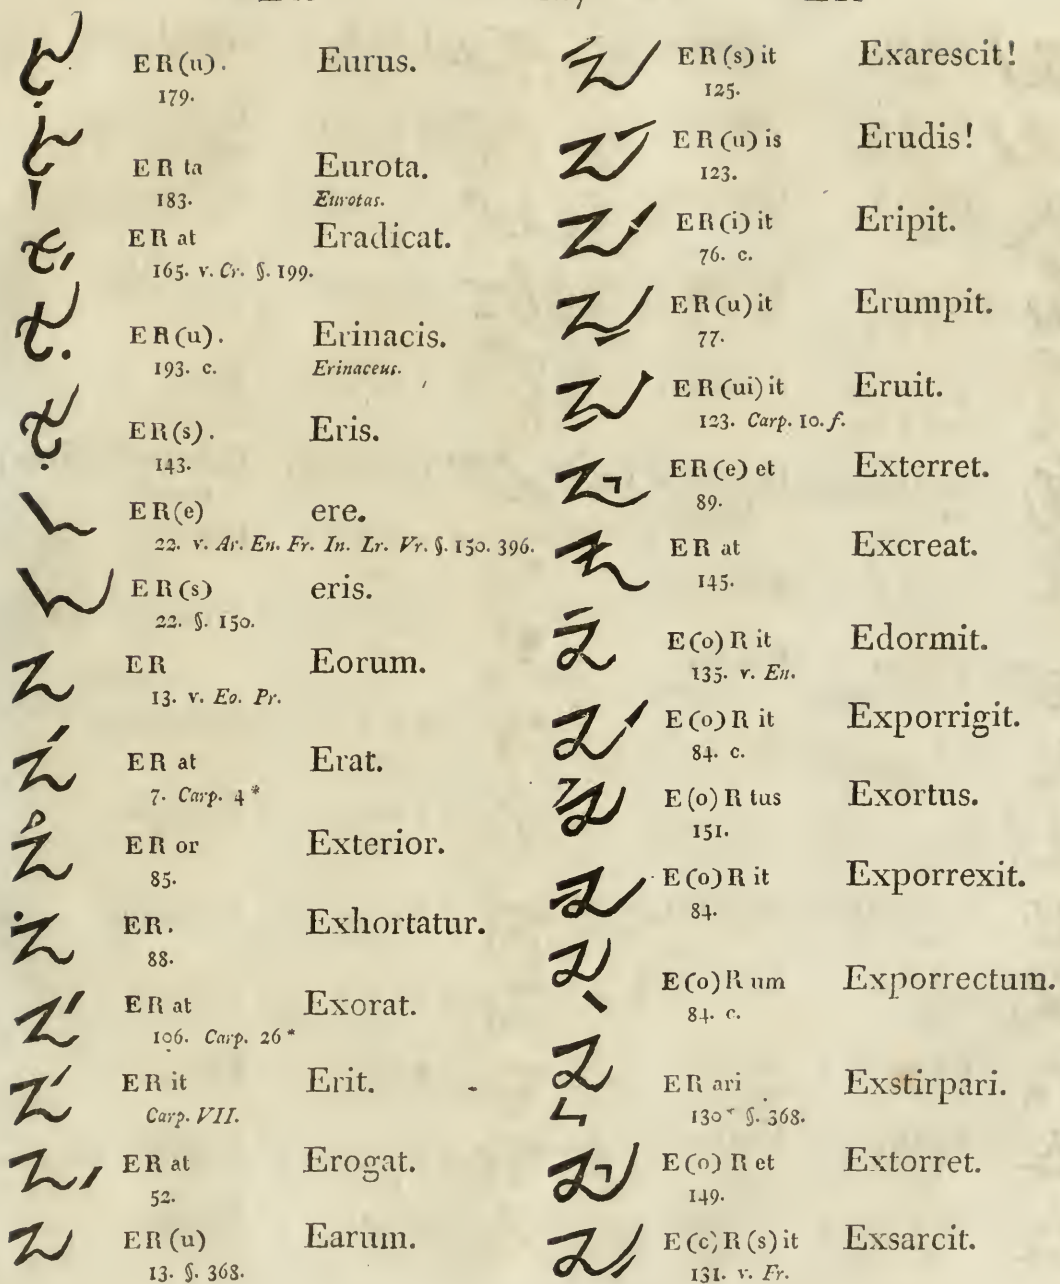 ER(u). Eurus.
179.
ER ta Eurota.
183. Eurotas.
ER at Eradicat.
165. v. Cr. §. 199.
ER(u). Erinacis.
193. c. Erinaceus.
ER(s). Eris.
143.
ER(e) ere.
22. v. Ar. En. Fr. In. Lr. Vr. §. 150. 396.
ER(s) eris.
22. §. 150.
ER Eorum.
13. v. Eo. Pr.
ER at Erat.
7. Carp. 4*
ER or Exterior.
85.
ER. Exhortatur.
88.
ER at Exorat.
106. Carp. 26*
ER it Erit.
Carp. VII.
ER at Erogat.
52.
ER(u) Earum.
13. §. 368.
ER(s) it Exarescit!
125.
ER(u) is Erudis!
123.
ER(i) it Eripit.
76. c.
ER(u) it Erumpit.
77.
ER(ui) it Eruit.
123. Carp. 10. f.
ER(e) et Exterret.
89.
ER at Excreat.
145.
E(o)R it Edormit.
135. v. En.
E(o)R it Exporrigit.
84. c.
E(o)R tus Exortus.
151.
E(o)R it Exporrexit.
84.
E(o)R um Exporrectum.
84. c.
ER ari Exstirpari.
130* §. 368.
E(o)R et Extorret.
149.
E(c)R(s) it Exsarcit.
131. v. Fr.